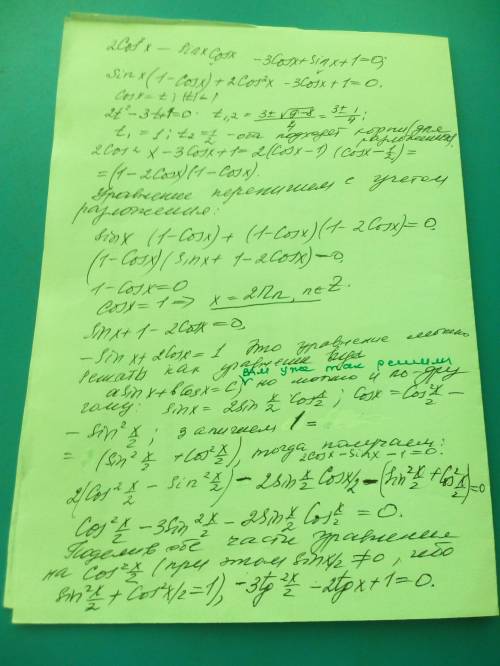 2Cos²x − sinx Cosx − 3Cosx + sinx + 1 = 0;
sinx (1−Cosx) + 2Cos²x − 3Cosx + 1 = 0.
Cosx = t; |t|≤1
2t² − 3t + 1 = 0. t₁,₂ = (3 ± √(9−8))/4 = (3 ± 1)/4;
t₁ = 1; t₂ = 1/2 – оба подходят корни (для разложения).
2Cos²x − 3Cosx + 1 = 2(Cosx−1)(Cosx − 1/2) =
= (1−2Cosx)(1−Cosx).
Уравнение перепишем с учетом
разложения:
sinx (1−Cosx) + (1−Cosx)(1−2Cosx) = 0.
(1−Cosx)(sinx + 1−2Cosx) = 0
1−Cosx = 0
Cosx = 1 => x = 2πn, n∈Z.
sinx + 1 − 2Cosx = 0,
−sinx + 2Cosx = 1 Это уравнение можно
решать как уравнение вида
вам уже так решили
asinx + bCosx = C, но можно и по-дру
гому: sinx = 2sin x/2 Cos x/2; Cosx = Cos² x/2 −
− sin² x/2; запишем 1 =
= (sin² x/2 + Cos² x/2), тогда получаем:
2Cosx − sinx − 1 = 0.
2(Cos² x/2 − sin² x/2) − 2sin x/2 Cos x/2 − (sin² x/2 + Cos² x/2) = 0
Cos² x/2 − 3sin² x/2 − 2sin x/2 Cos x/2 = 0.
Поделив обе части уравнения
на Cos² x/2 (при этом sin x/2 ≠ 0, ибо
sin² x/2 + Cos² x/2 = 1), −3tg² x/2 − 2tgx + 1 = 0.